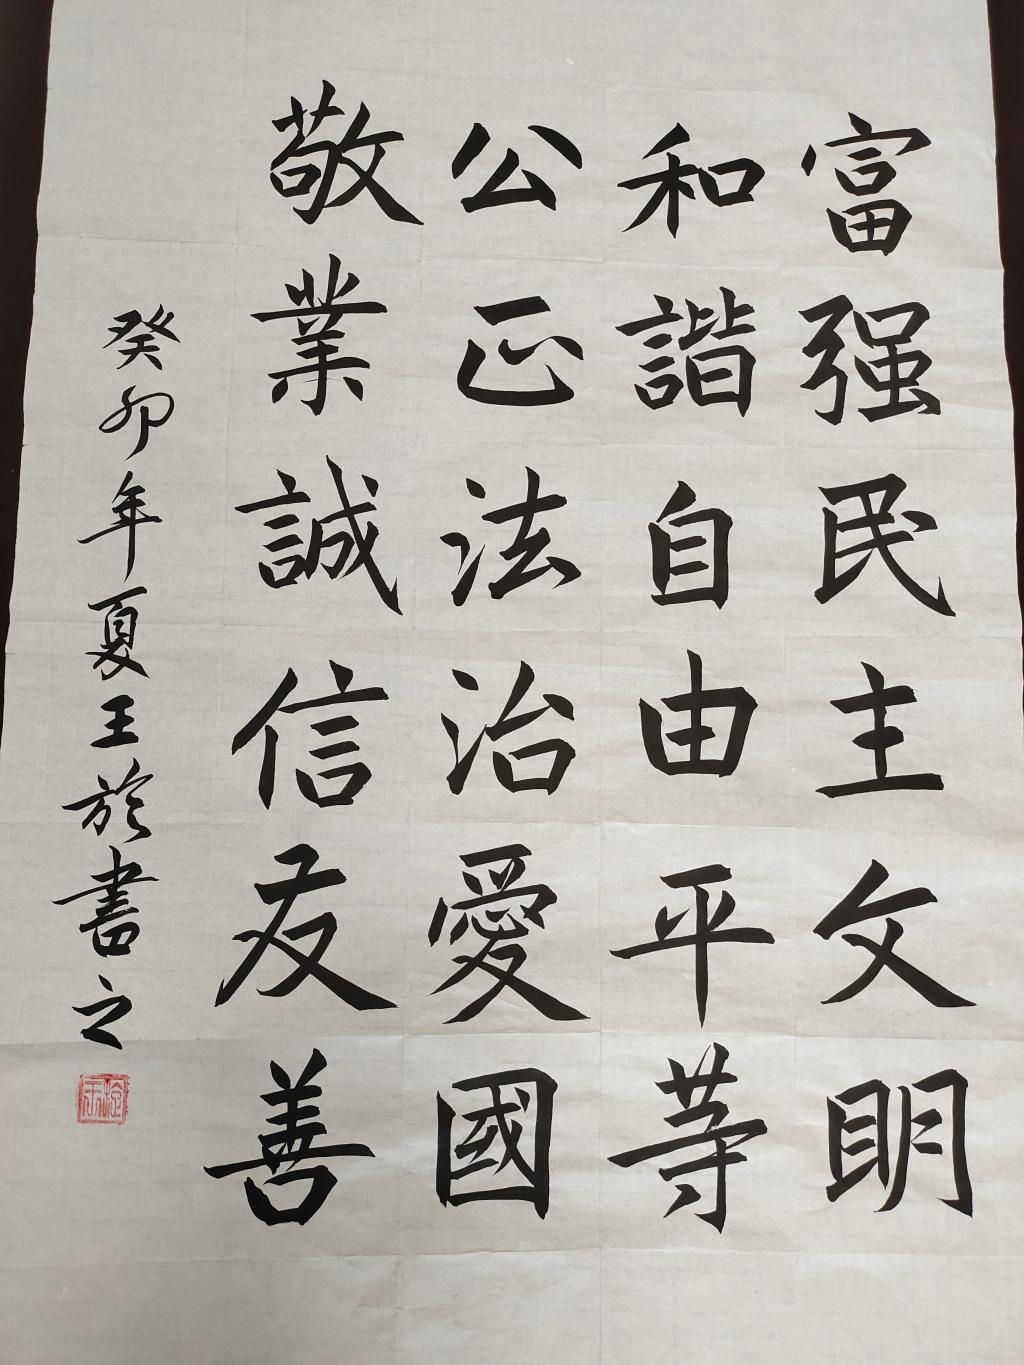 富强民主文明
和諧自由平等
公正法治愛國
敬業誠信友善
癸卯年夏王於書之